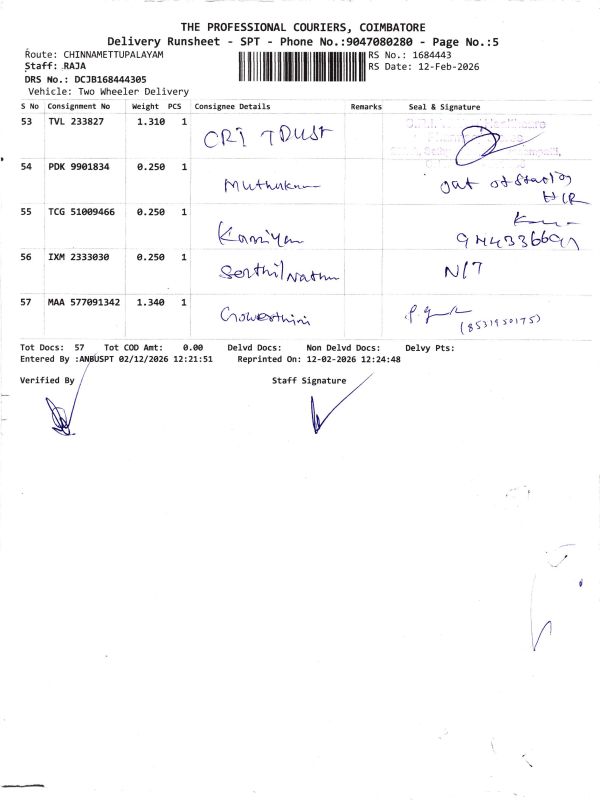 THE PROFESSIONAL COURIERS, COIMBATORE
Delivery Runsheet - SPT - Phone No.:9047080280 - Page No.:5
Route: CHINNAMETTUPALAYAM RS No.: 1684443
Staff: RAJA RS Date: 12-Feb-2026
DRS No.: DCJB168444305
Vehicle: Two Wheeler Delivery
S No Consignment No Weight PCS Consignee Details Remarks Seal & Signature
53 TVL 233827 1.310 1 CRI TRUST
54 PDK 9901834 0.250 1 Muthukum out of station
HCR
55 TCG 51009466 0.250 1
56 IXM 2333030 0.250 1 Senthil Nathan N/7
57 MAA 577091342 1.340 1 Gowarthini
(8531950175)
Tot Docs: 57 Tot COD Amt: 0.00 Delvd Docs: Non Delvd Docs: Delvy Pts:
Entered By :ANBUSPT 02/12/2026 12:21:51 Reprinted On: 12-02-2026 12:24:48
Verified By Staff Signature